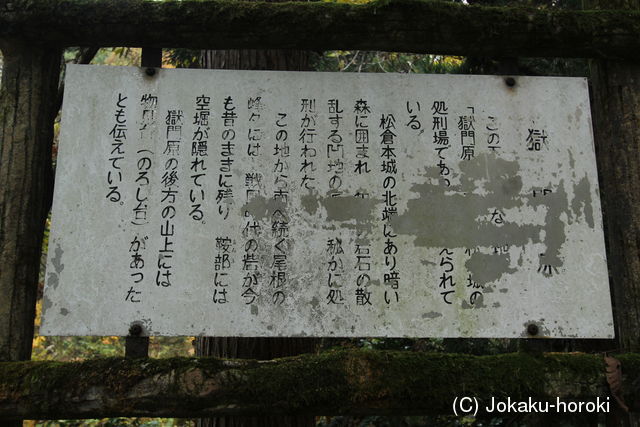 獄門原
この下　　な　地
「獄門原　　　松　城の
処刑場であっ　　えられて
いる。
松倉本城の北端にあり暗い
森に囲まれ　　岩石の散
乱する凹地の　　秘かに処
刑が行われた
この地から南へ続く尾根の
峰々には　戦国時代の砦が今
も昔のままに残り　鞍部には
空堀が隠れている。
獄門原の後方の山上には
物見台（のろし台）があった
とも伝えている。
(C) Jokaku-horoki